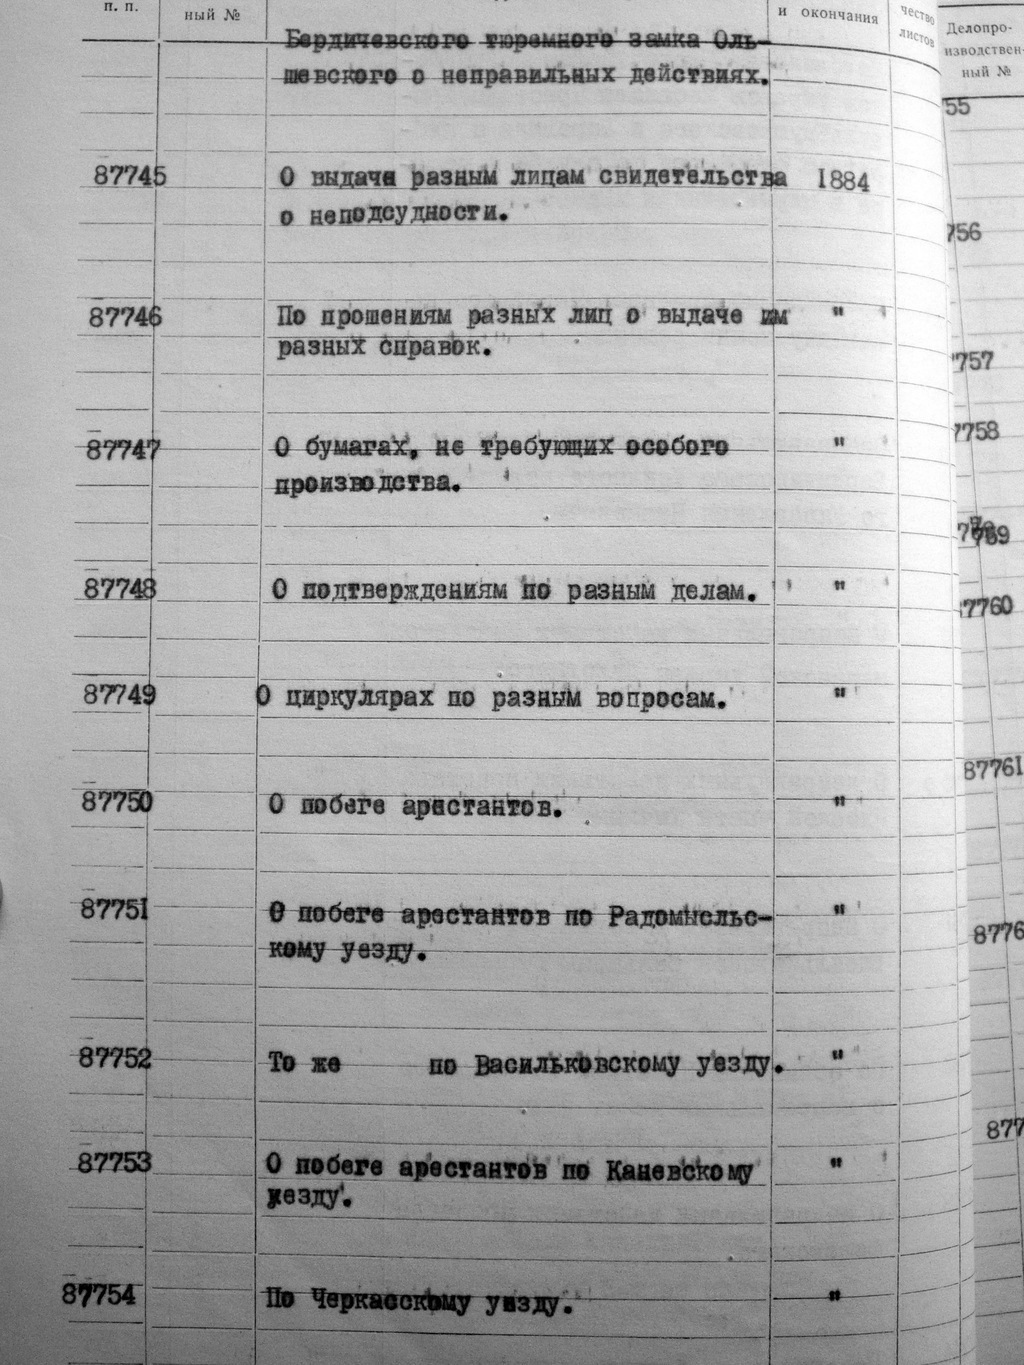 п. п.
ный №
и окончания
чество
листов
Бердичевского тюремного замка Оль-
шевского о неправильных действиях.
87745 О выдаче разным лицам свидетельства 1884
о неподсудности.
87746 По прошениям разных лиц о выдаче им "
разных справок.
87747 О бумагах, не требующих особого "
производства.
87748 О подтверждениям по разным делам. "
87749 О циркулярах по разным вопросам. "
87750 О побеге арестантов. "
87751 О побеге арестантов по Радомысльс- "
кому уезду.
87752 То же по Васильковскому уезду. "
87753 О побеге арестантов по Каневскому "
уезду.
87754 По Черкасскому уезду. "
Делопро-
изводствен-
ный №
755
756
7757
7758
87760
87761
8776
877